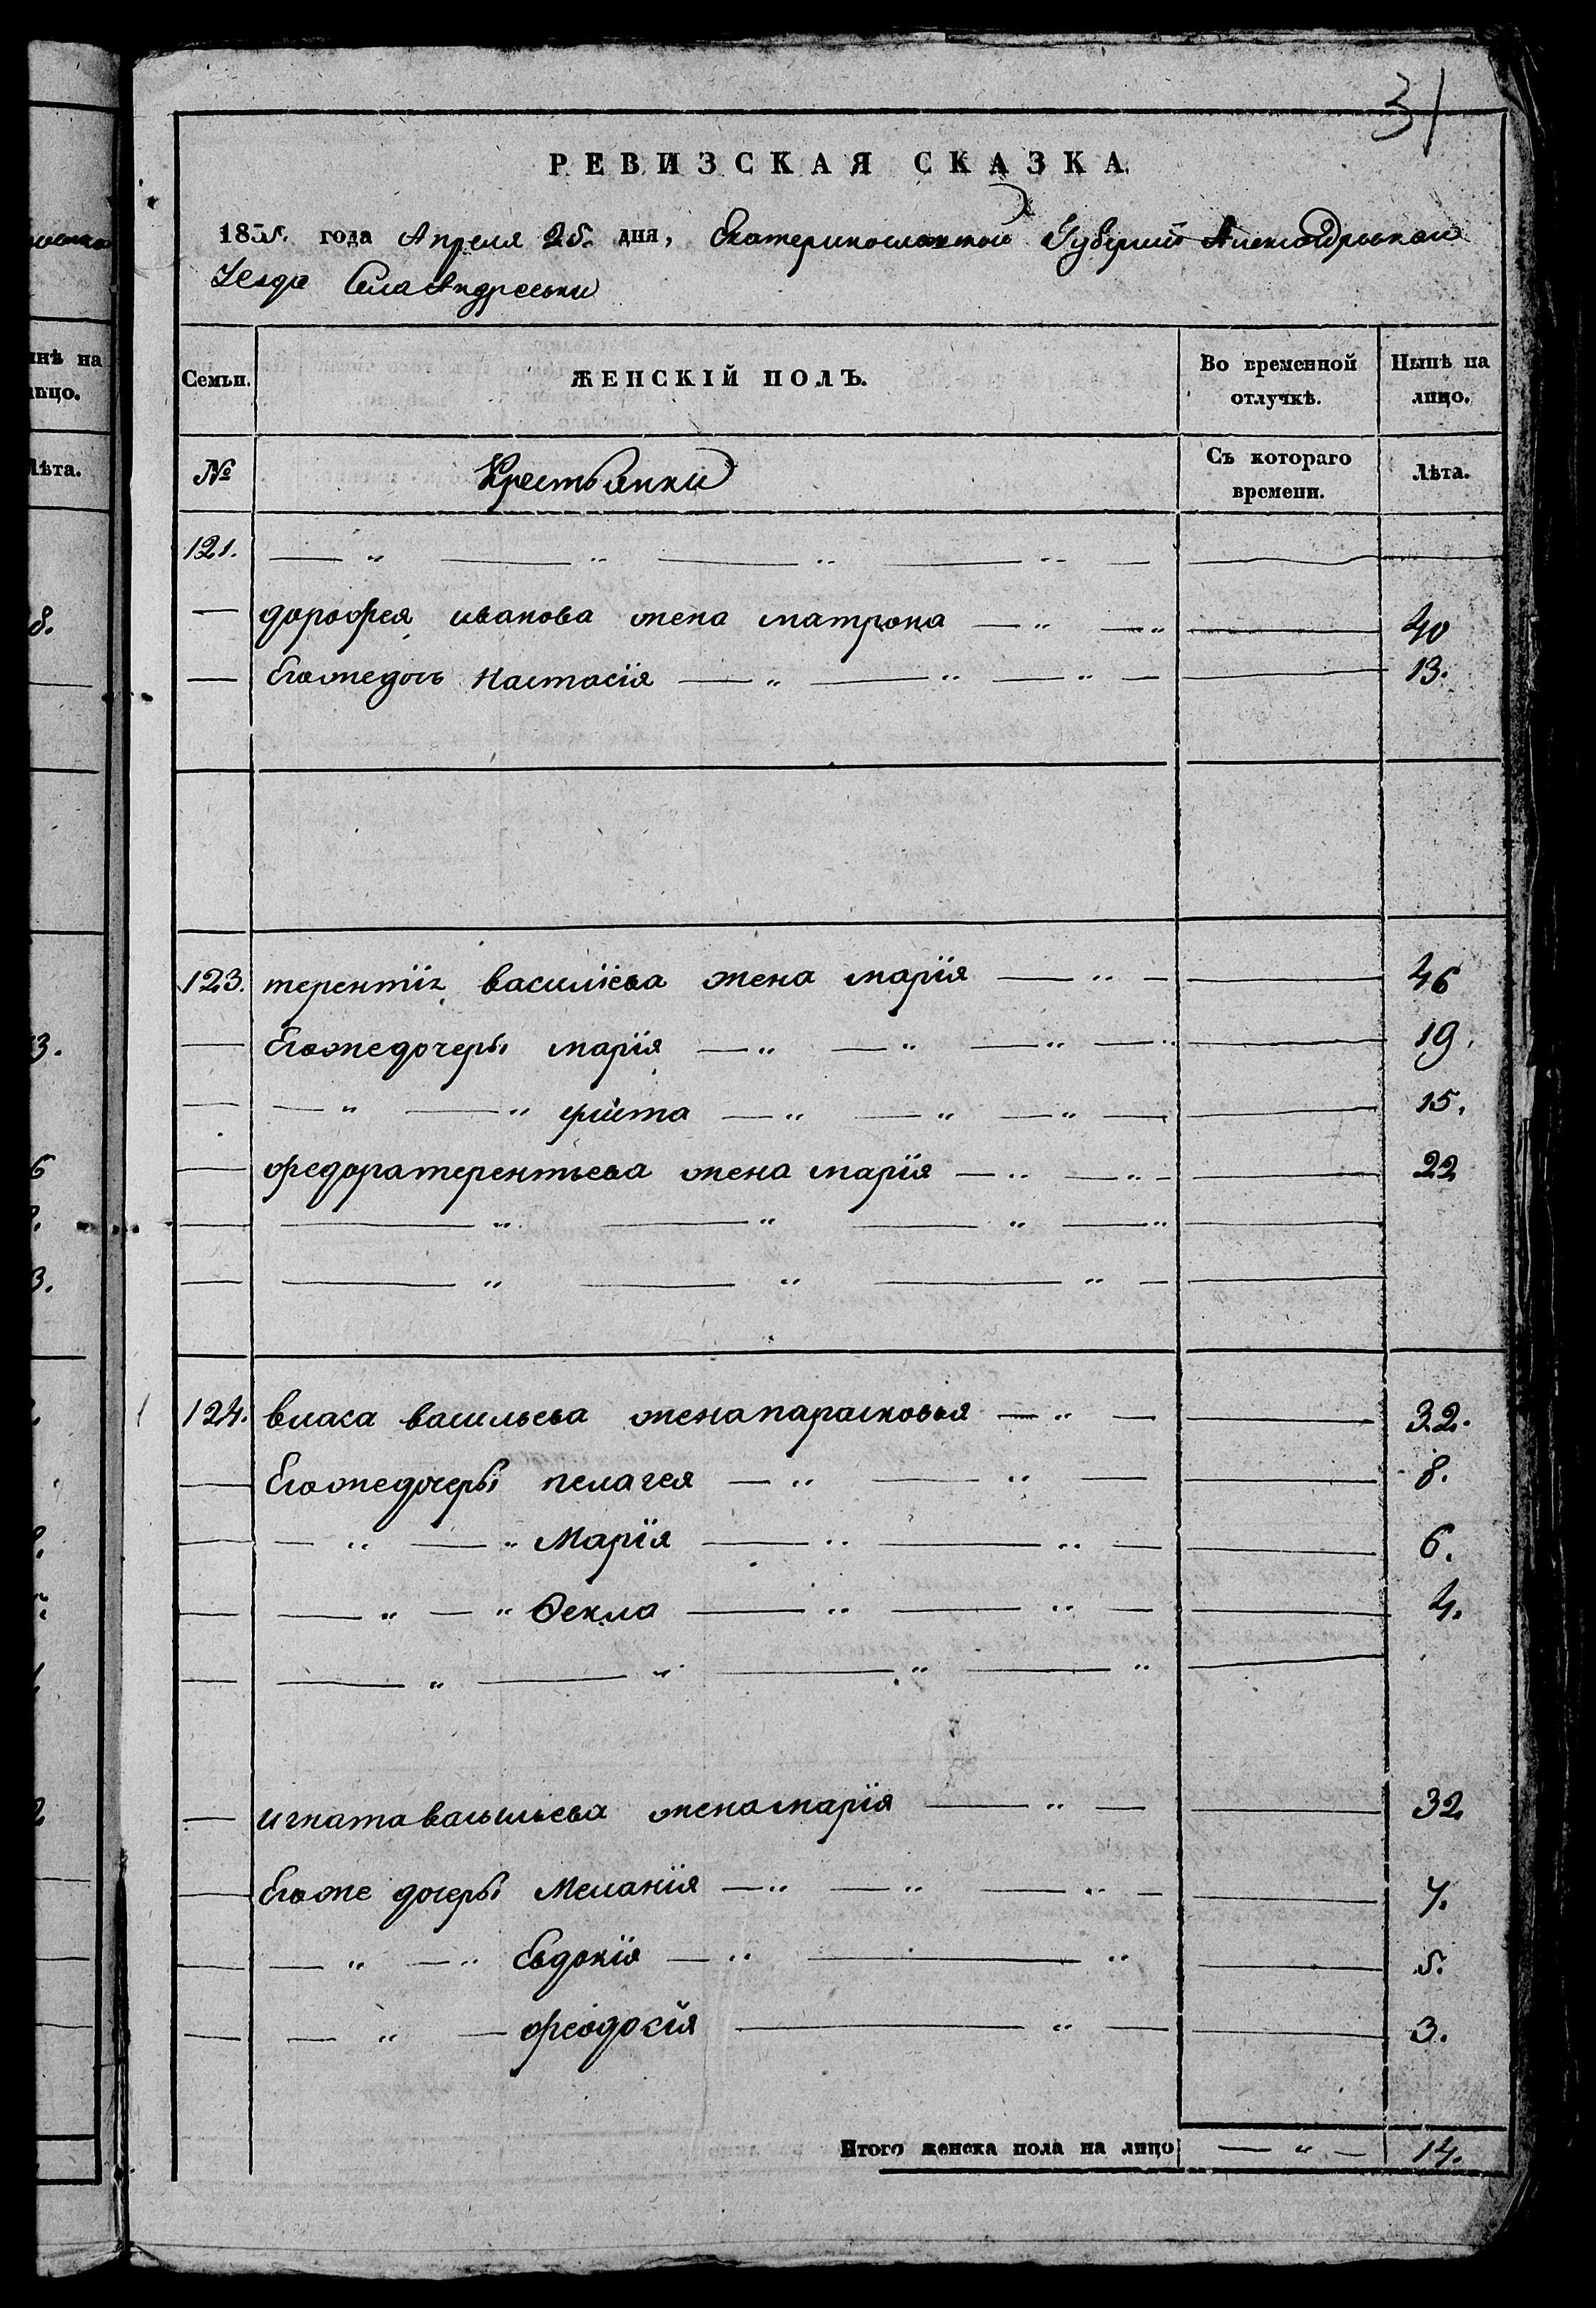 31
РЕВИЗСКАЯ СКАЗКА
1835. года Апреля 25. дня, Екатеринославской Губернии Александровскаго
Уезда Села Андреевки
Семьи. ЖЕНСКІЙ ПОЛЪ. Во временной отлучкѣ. Нынѣ на лицо.
№ Крестьянки Съ котораго времени. Лѣта.
121. — „ — „ — „ — „ —
— дорофея иванова жена матрона — „ — „ — 40
— Егожедочь Настасія — „ — „ — „ — 13.
123. терентіа василіева жена марія — „ — 46
— Егожедочеры марія — „ — „ — „ — 19.
— — „ — „ — „ — „ — „ — 15.
— федоратерентьева жена марія — „ — „ — 22
— — „ — „ — „ — „ —
— — „ — „ — „ —
124. власа васильева женапарасковья — „ — 32.
— Егожедочеры пелагея — „ — „ — 8.
— — „ — „ Марія — „ — „ — 6.
— — „ — „ Ѳекла — „ — „ — 4.
— — „ — „ — „ — „ —
— игнатавасильева женамарія — „ — 32
— Егоже дочеры Меланія — „ — „ — „ — 7.
— — „ — „ Евдокія — „ — „ — 5.
— — „ — феодосія — „ — 3.
Итого женска пола на лицо — „ — 14.
нѣ на
лицо.
Лѣта.
8.
3.
6
3.